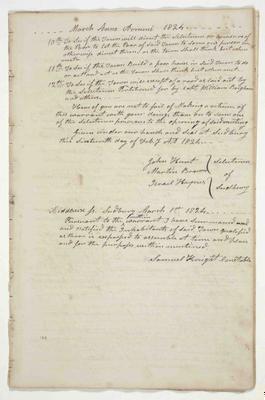 March Anno Domini 1824
10th To see if the Town will direct the Selectmen or overseers of
the Poor to let the Poor of said Town to some one person or
otherwise direct them, as the Town shall think best when
met
11th To see if the Town Build a poor house in said Town to do
or act on said as the Town shall think best when met
12th To see if the Town will accept of a road as laid out by
the Selectmen Petitioned for by Capt William Brigham
and others
Hereof you are not to fail of Making a return of
this warrant with your doings thereon to some one
of the Selectmen previous to the opening of said meeting
Given under our hands and Seal at Sudbury
this Sixteenth day of Feby AD 1824
John Hunt
Martin Brown
Israel Haynes
Selectmen
of
Sudbury
Middlesex Ss. Sudbury March 1st 1824
Pursuant to the within warrant I have summoned
and notified the Inhabitants of said Town qualified
as therein expressed to assemble at time and place
and for the purposes within mentioned
Samuel Knight Constable